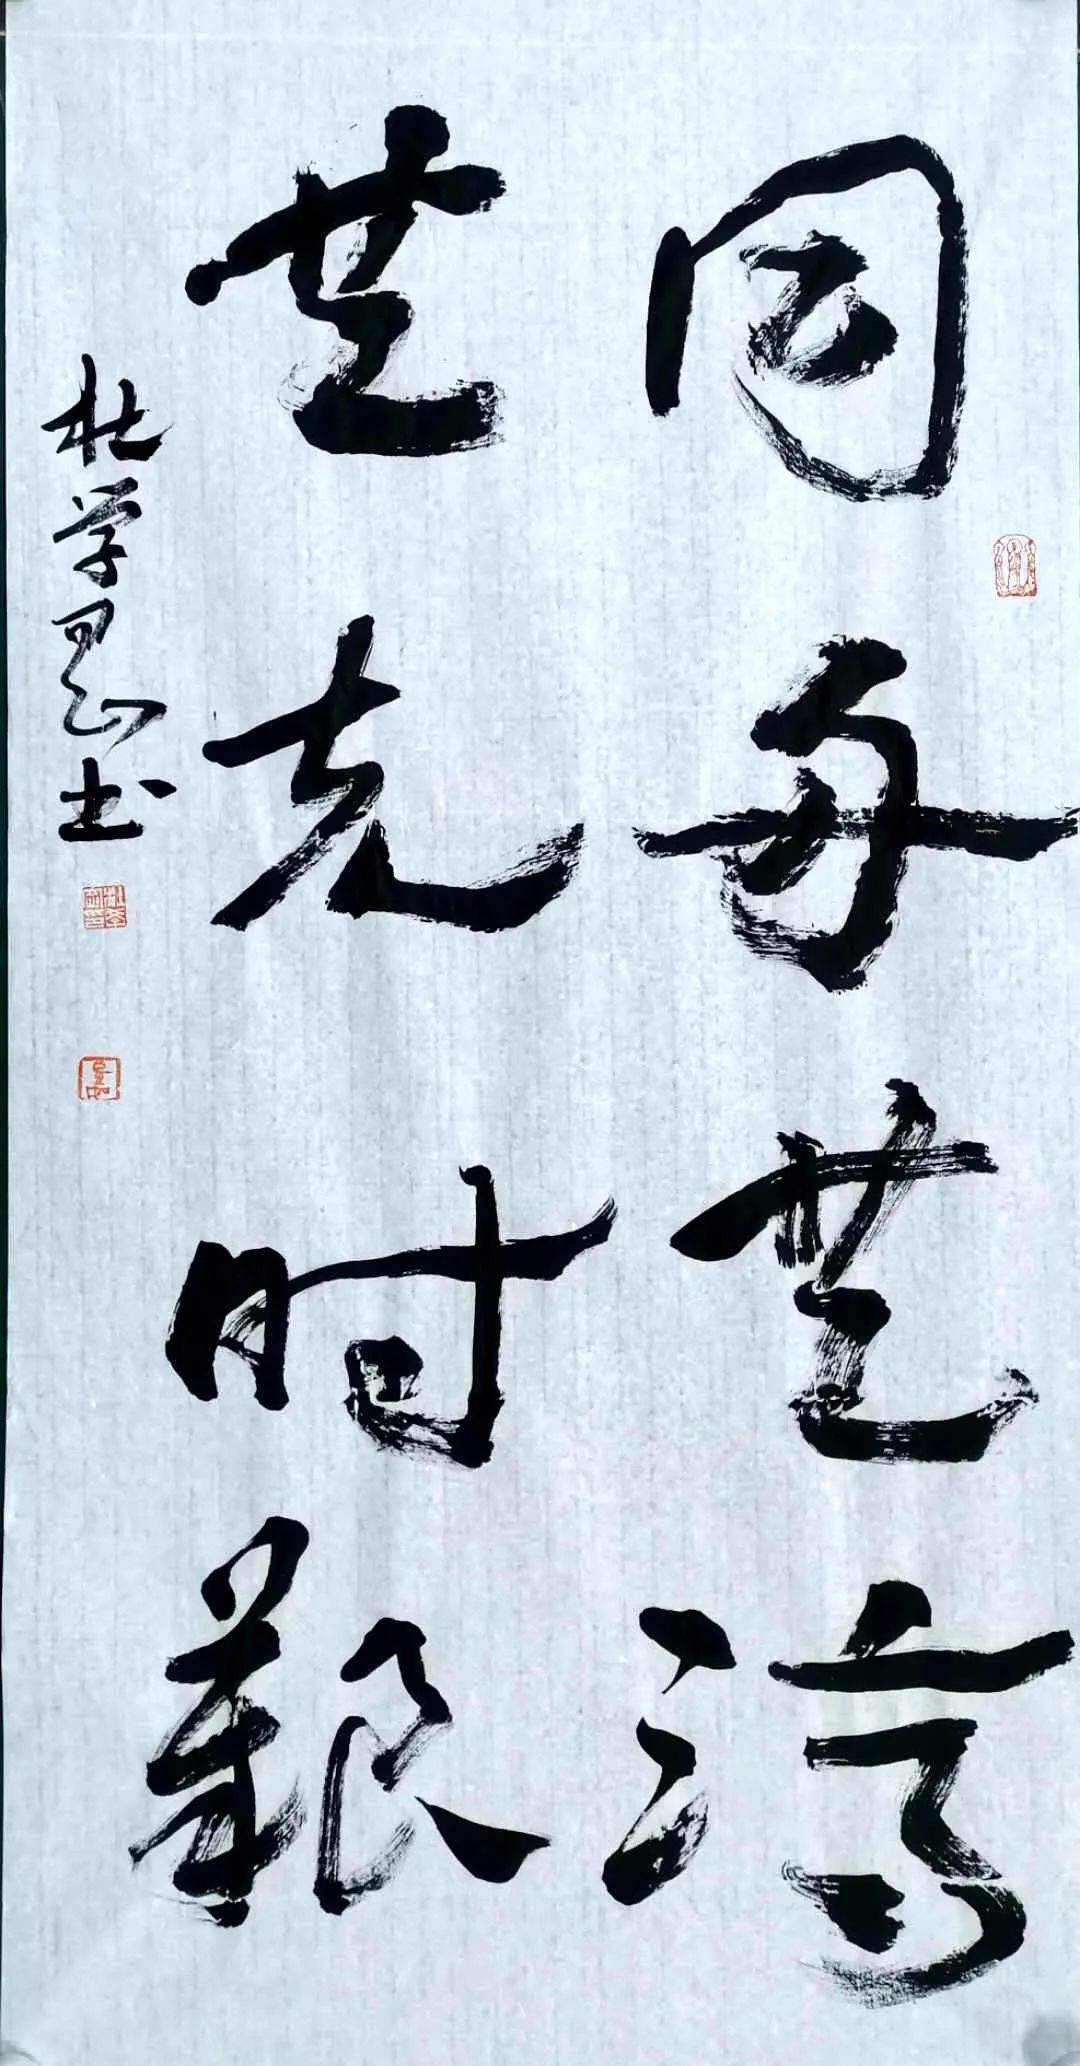 同舟共济
共克时艰
杜学君书